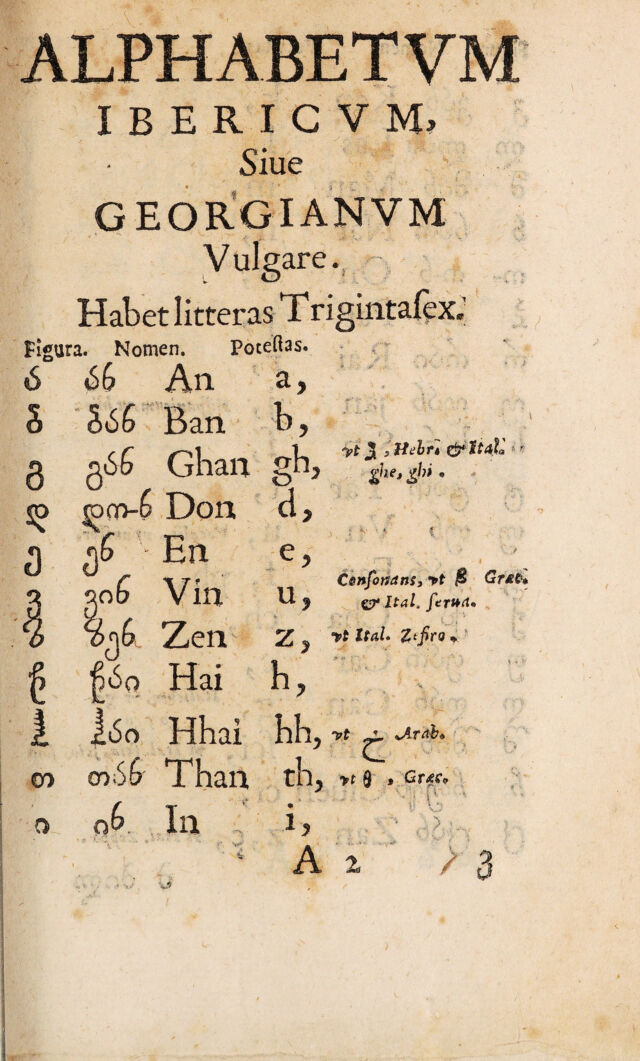 ALPHABETVM
IBERICVM,
Siue
GEORGIANVM
Vulgare.
Habet litteras Trigintaſex.
Figura. Nomen. Poteſtas.
ა ან An a,
ბ ბან Ban b,
გ გან Ghan gh, vt ג, Hebr. & Ital. ghe, ghi.
დ დო-ნ Don d,
ე ენ En e,
ვ ვინ Vin u, Conſonans, vt β Græc. & Ital. ſerua.
ზ ზენ Zen z, vt Ital. Zefiro.
ჱ ჱაი Hai h,
Hhai hh, vt ح Arab.
თ თან Than th, vt θ, Græc.
ი ინ In i,
A 2 კ